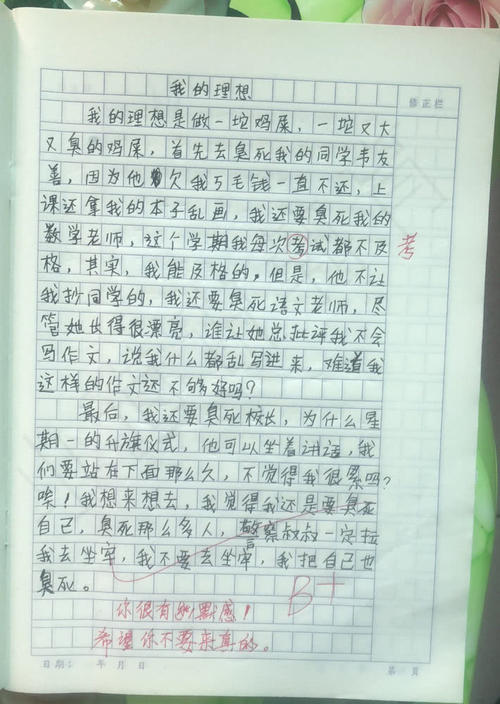 我的理想
修正栏
我的理想是做一坨鸡屎，一坨又大
又臭的鸡屎，首先去臭死我的同学韦友
善，因为他欠我5毛钱一直不还，上
课还拿我的本子乱画，我还要臭死我的
数学老师，这个学期我每次考试都不及
考
格，其实，我能及格的，但是，他不让
我抄同学的，我还要臭死语文老师，尽
管她长得很漂亮，谁让她总批评我不会
写作文，说我什么都乱写进来，难道我
这样的作文还不够好吗？
最后，我还要臭死校长，为什么星
期一的升旗仪式，他可以坐着讲话，我
们要站在下面那么久，不觉得我很累吗？
唉！我想来想去，我觉得我还是要臭死
自己，臭死那么多人，警察叔叔一定拉
我去坐牢，我不要去坐牢，我把自己也
臭死。
B+
你很有幽默感！
希望你不要来真的。
日期： 年 月 日
第 页